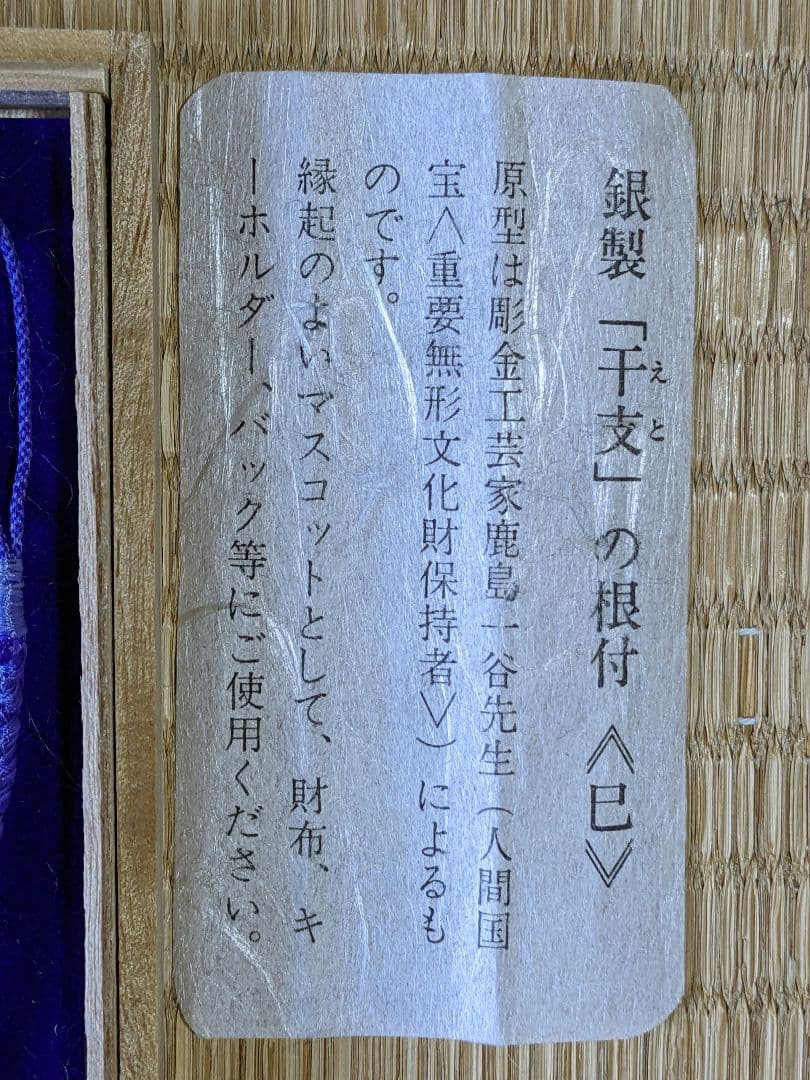 銀製「干支」の根付 《巳》
えと
原型は彫金工芸家鹿島一谷先生（人間国
宝〈重要無形文化財保持者〉）によるも
のです。
縁起のよいマスコットとして、財布、キ
ーホルダー、バック等にご使用ください。